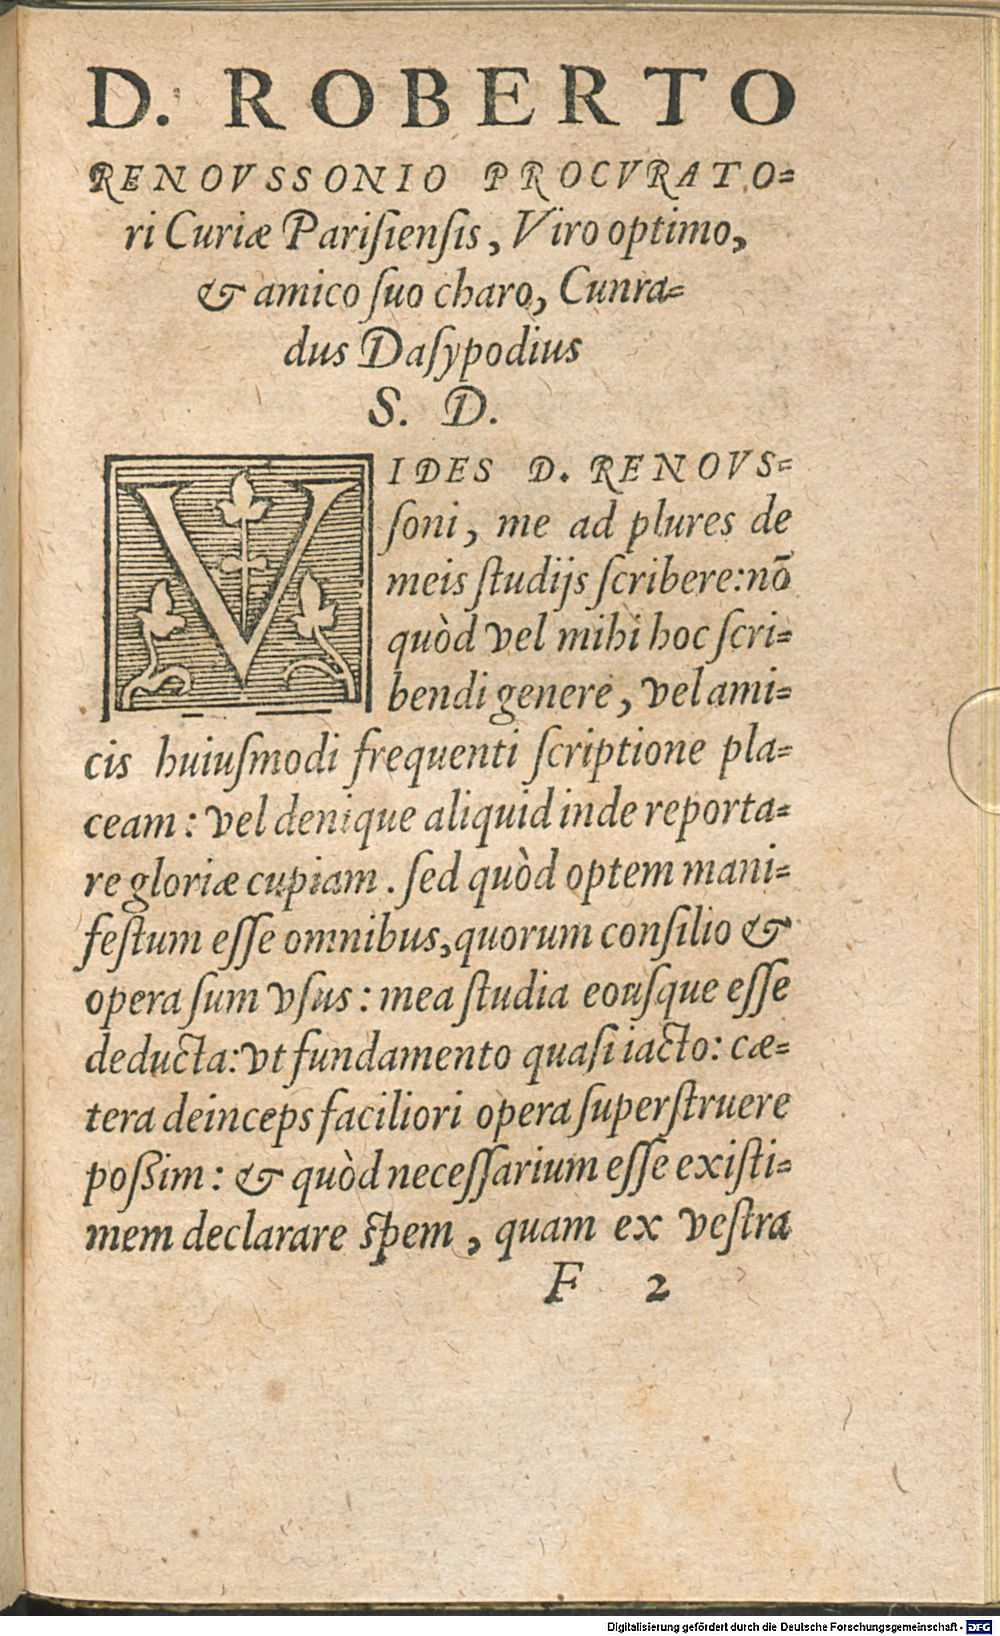 D. ROBERTO
RENOVSSONIO PROCVRATO=
ri Curiæ Pariſienſis, Viro optimo,
& amico ſuo charo, Cunra=
dus Daſypodius
S. D.
VIDES D. RENOVS=
ſoni, me ad plures de
meis ſtudijs ſcribere: nō
quòd vel mihi hoc ſcri=
bendi genere, vel ami=
cis huiuſmodi frequenti ſcriptione pla=
ceam: vel denique aliquid inde reporta=
re gloriæ cupiam. ſed quòd optem mani=
feſtum eſſe omnibus, quorum conſilio &
opera ſum vſus: mea ſtudia eouſque eſſe
deducta: vt fundamento quaſi iacto: cæ=
tera deinceps faciliori opera ſuperſtruere
poßim: & quòd neceſſarium eſſe exiſti=
mem declarare ſpem, quam ex veſtra
F 2
Digitalisierung gefördert durch die Deutsche Forschungsgemeinschaft - DFG